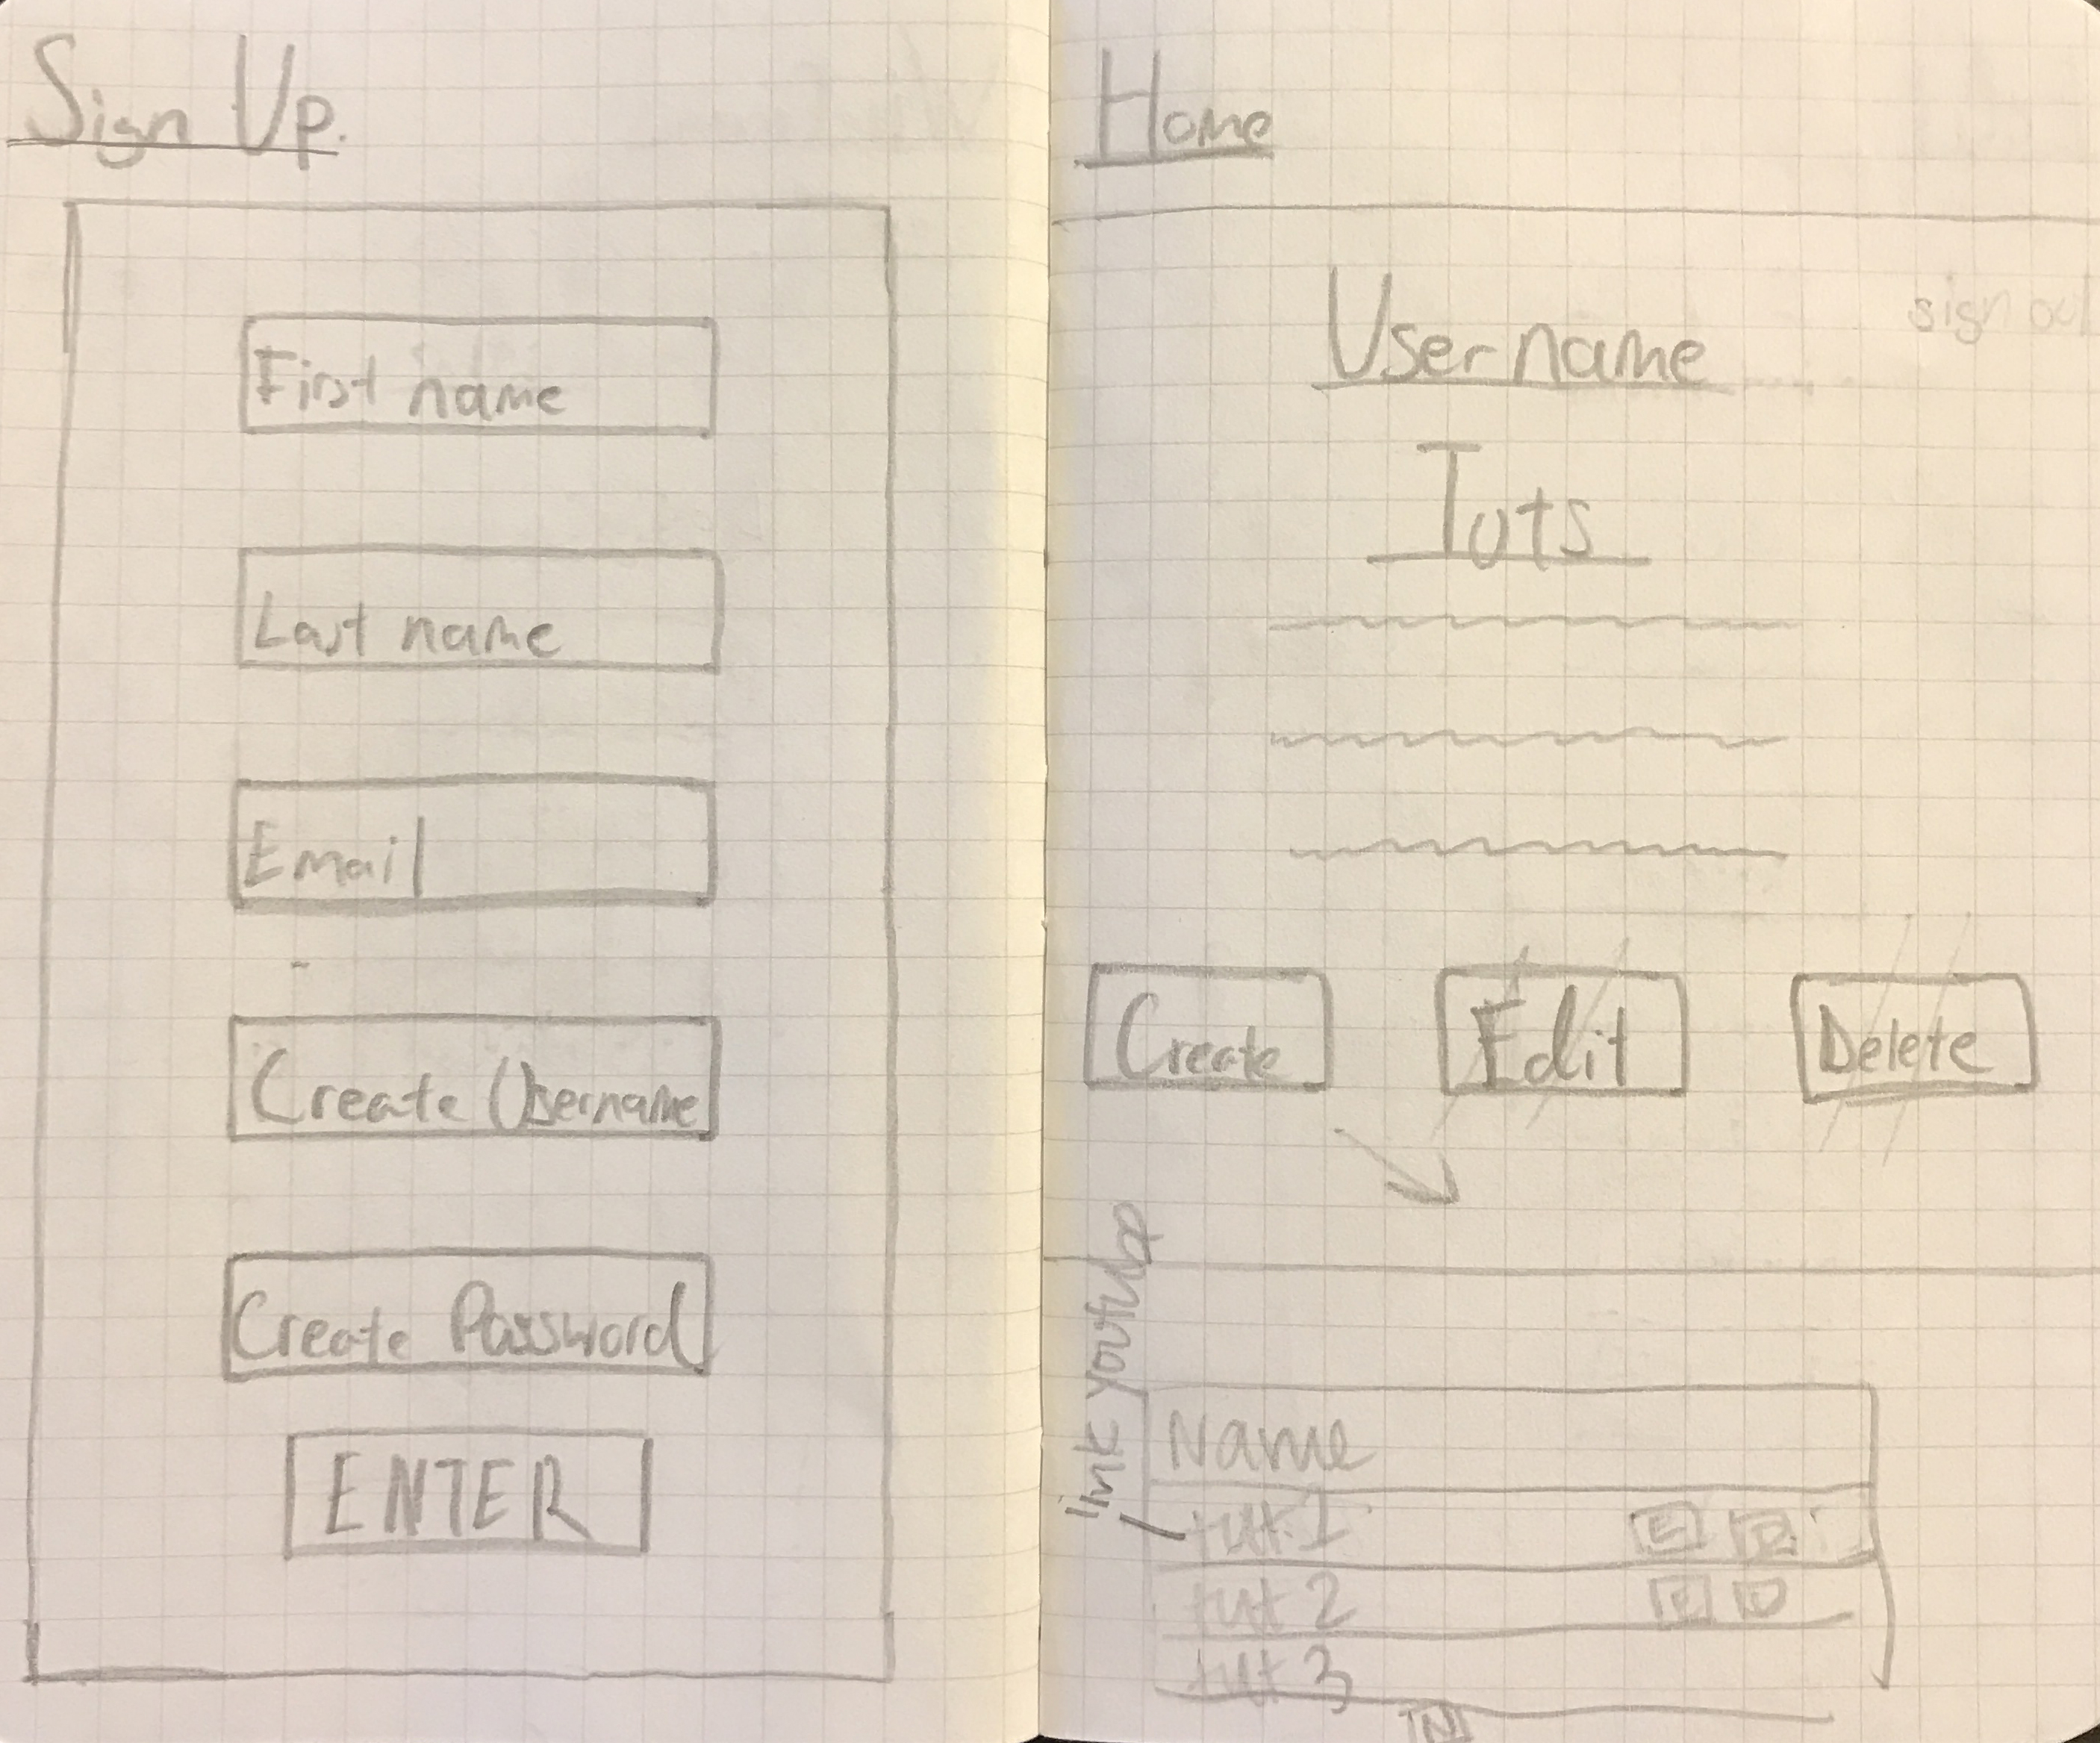 Sign Up.
First name
Last name
Email
Create Username
Create Password
ENTER
Home
sign out
Username
Tuts
Create
Edit
Delete
link youtube
Name
tut 1 E D
tut 2 E D
tut 3
N